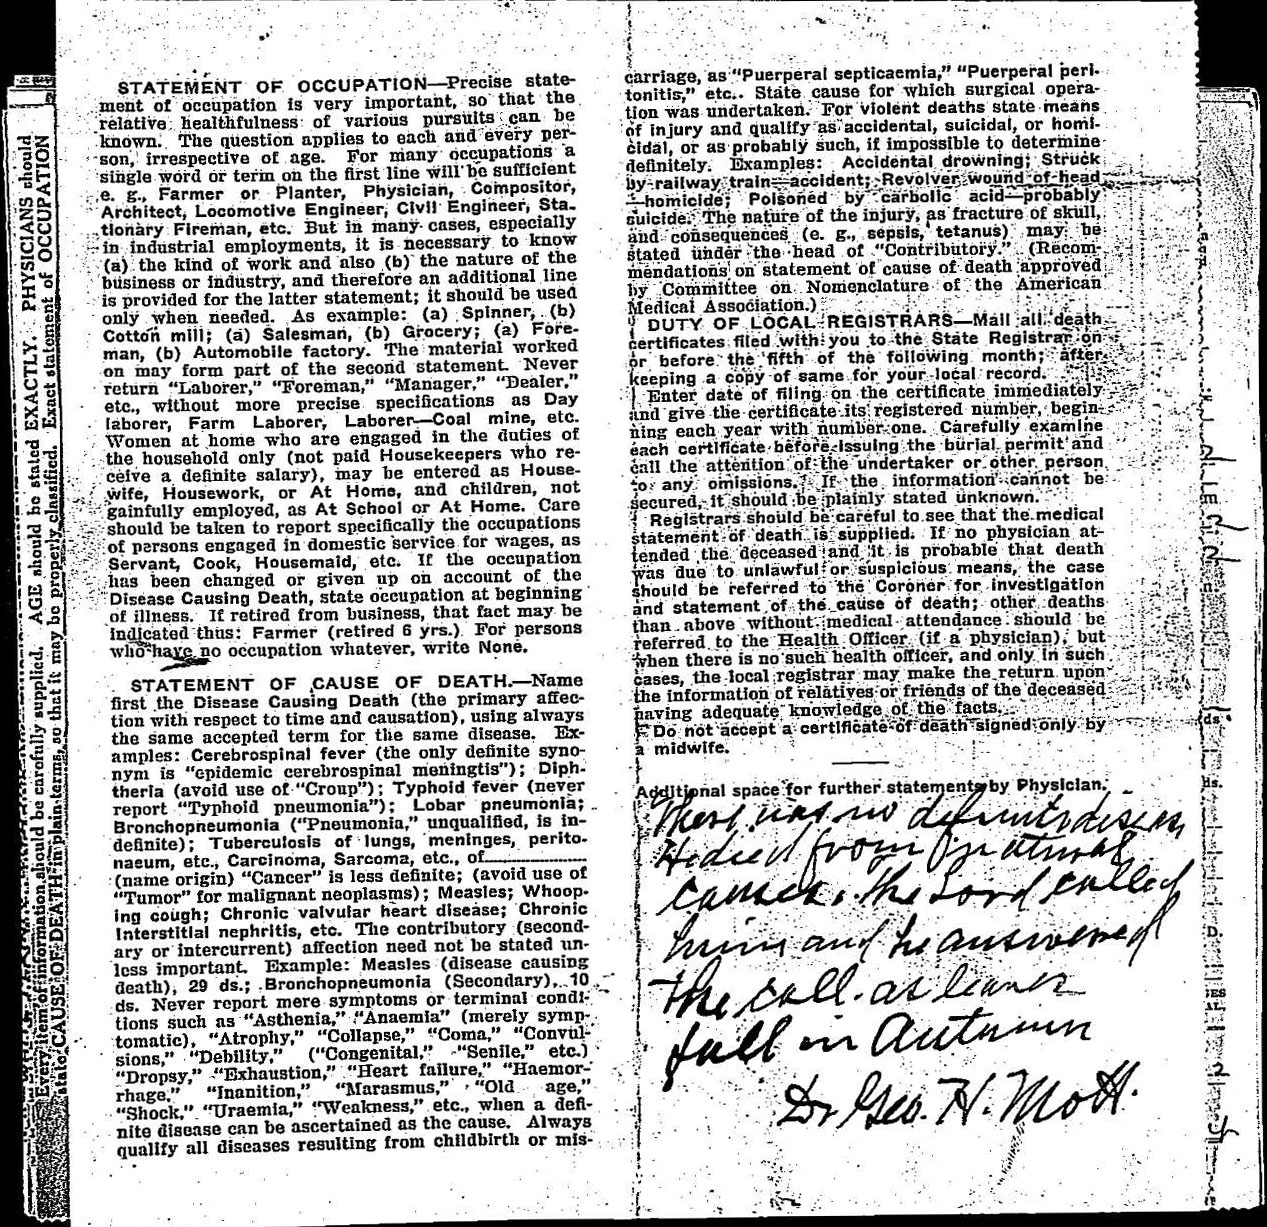 STATEMENT OF OCCUPATION—Precise state-
ment of occupation is very important, so that the
relative healthfulness of various pursuits can be
known. The question applies to each and every per-
son, irrespective of age. For many occupations a
single word or term on the first line will be sufficient
e. g., Farmer or Planter, Physician, Compositor,
Architect, Locomotive Engineer, Civil Engineer, Sta-
tionary Fireman, etc. But in many cases, especially
in industrial employments, it is necessary to know
(a) the kind of work and also (b) the nature of the
business or industry, and therefore an additional line
is provided for the latter statement; it should be used
only when needed. As example: (a) Spinner, (b)
Cotton mill; (a) Salesman, (b) Grocery; (a) Fore-
man, (b) Automobile factory. The material worked
on may form part of the second statement. Never
return "Laborer," "Foreman," "Manager," "Dealer,"
etc., without more precise specifications as Day
laborer, Farm Laborer, Laborer—Coal mine, etc.
Women at home who are engaged in the duties of
the household only (not paid Housekeepers who re-
ceive a definite salary), may be entered as House-
wife, Housework, or At Home, and children, not
gainfully employed, as At School or At Home. Care
should be taken to report specifically the occupations
of persons engaged in domestic service for wages, as
Servant, Cook, Housemaid, etc. If the occupation
has been changed or given up on account of the
Disease Causing Death, state occupation at beginning
of illness. If retired from business, that fact may be
indicated thus: Farmer (retired 6 yrs.) For persons
who have no occupation whatever, write None.
STATEMENT OF CAUSE OF DEATH.—Name
first the Disease Causing Death (the primary affec-
tion with respect to time and causation), using always
the same accepted term for the same disease. Ex-
amples: Cerebrospinal fever (the only definite syno-
nym is "epidemic cerebrospinal meningtis"); Diph-
theria (avoid use of "Croup"); Typhoid fever (never
report "Typhoid pneumonia"); Lobar pneumonia;
Bronchopneumonia ("Pneumonia," unqualified, is in-
definite); Tuberculosis of lungs, meninges, perito-
naeum, etc., Carcinoma, Sarcoma, etc., of
(name origin) "Cancer" is less definite; (avoid use of
"Tumor" for malignant neoplasms); Measles; Whoop-
ing cough; Chronic valvular heart disease; Chronic
interstitial nephritis, etc. The contributory (second-
ary or intercurrent) affection need not be stated un-
less important. Example: Measles (disease causing
death), 29 ds.; Bronchopneumonia (Secondary), 10
ds. Never report mere symptoms or terminal condi-
tions such as "Asthenia," "Anaemia" (merely symp-
tomatic), "Atrophy," "Collapse," "Coma," "Convul-
sions," "Debility," ("Congenital," "Senile," etc.)
"Dropsy," "Exhaustion," "Heart failure," "Haemor-
rhage," "Inanition," "Marasmus," "Old age,"
"Shock," "Uraemia," "Weakness," etc., when a defi-
nite disease can be ascertained as the cause. Always
qualify all diseases resulting from childbirth or mis-
carriage, as "Puerperal septicaemia," "Puerperal peri-
tonitis," etc.. State cause for which surgical opera-
tion was undertaken. For violent deaths state means
of injury and qualify as accidental, suicidal, or homi-
cidal, or as probably such, if impossible to determine
definitely. Examples: Accidental drowning; Struck
by railway train—accident; Revolver wound of head
—homicide; Poisoned by carbolic acid—probably
suicide. The nature of the injury, as fracture of skull,
and consequences (e. g., sepsis, tetanus) may be
stated under the head of "Contributory." (Recom-
mendations on statement of cause of death approved
by Committee on Nomenclature of the American
Medical Association.)
DUTY OF LOCAL REGISTRARS—Mail all death
certificates filed with you to the State Registrar on
or before the fifth of the following month; after
keeping a copy of same for your local record.
Enter date of filing on the certificate immediately
and give the certificate its registered number, begin-
ning each year with number one. Carefully examine
each certificate before issuing the burial permit and
call the attention of the undertaker or other person
to any omissions. If the information cannot be
secured, it should be plainly stated unknown.
Registrars should be careful to see that the medical
statement of death is supplied. If no physician at-
tended the deceased and it is probable that death
was due to unlawful or suspicious means, the case
should be referred to the Coroner for investigation
and statement of the cause of death; other deaths
than above without medical attendance should be
referred to the Health Officer (if a physician), but
when there is no such health officer, and only in such
cases, the local registrar may make the return upon
the information of relatives or friends of the deceased
having adequate knowledge of the facts.
Do not accept a certificate of death signed only by
a midwife.
Additional space for further statements by Physician.
There was no definite disease
He died from natural
causes. The Lord called
him and he answered
the call. as leaves
fall in Autumn
Dr Geo. H. Mott.
Every item of information should be carefully supplied. AGE should be stated EXACTLY. PHYSICIANS should
state CAUSE OF DEATH in plain terms, so that it may be properly classified. Exact statement of OCCUPATION
ds.
ds.
D.